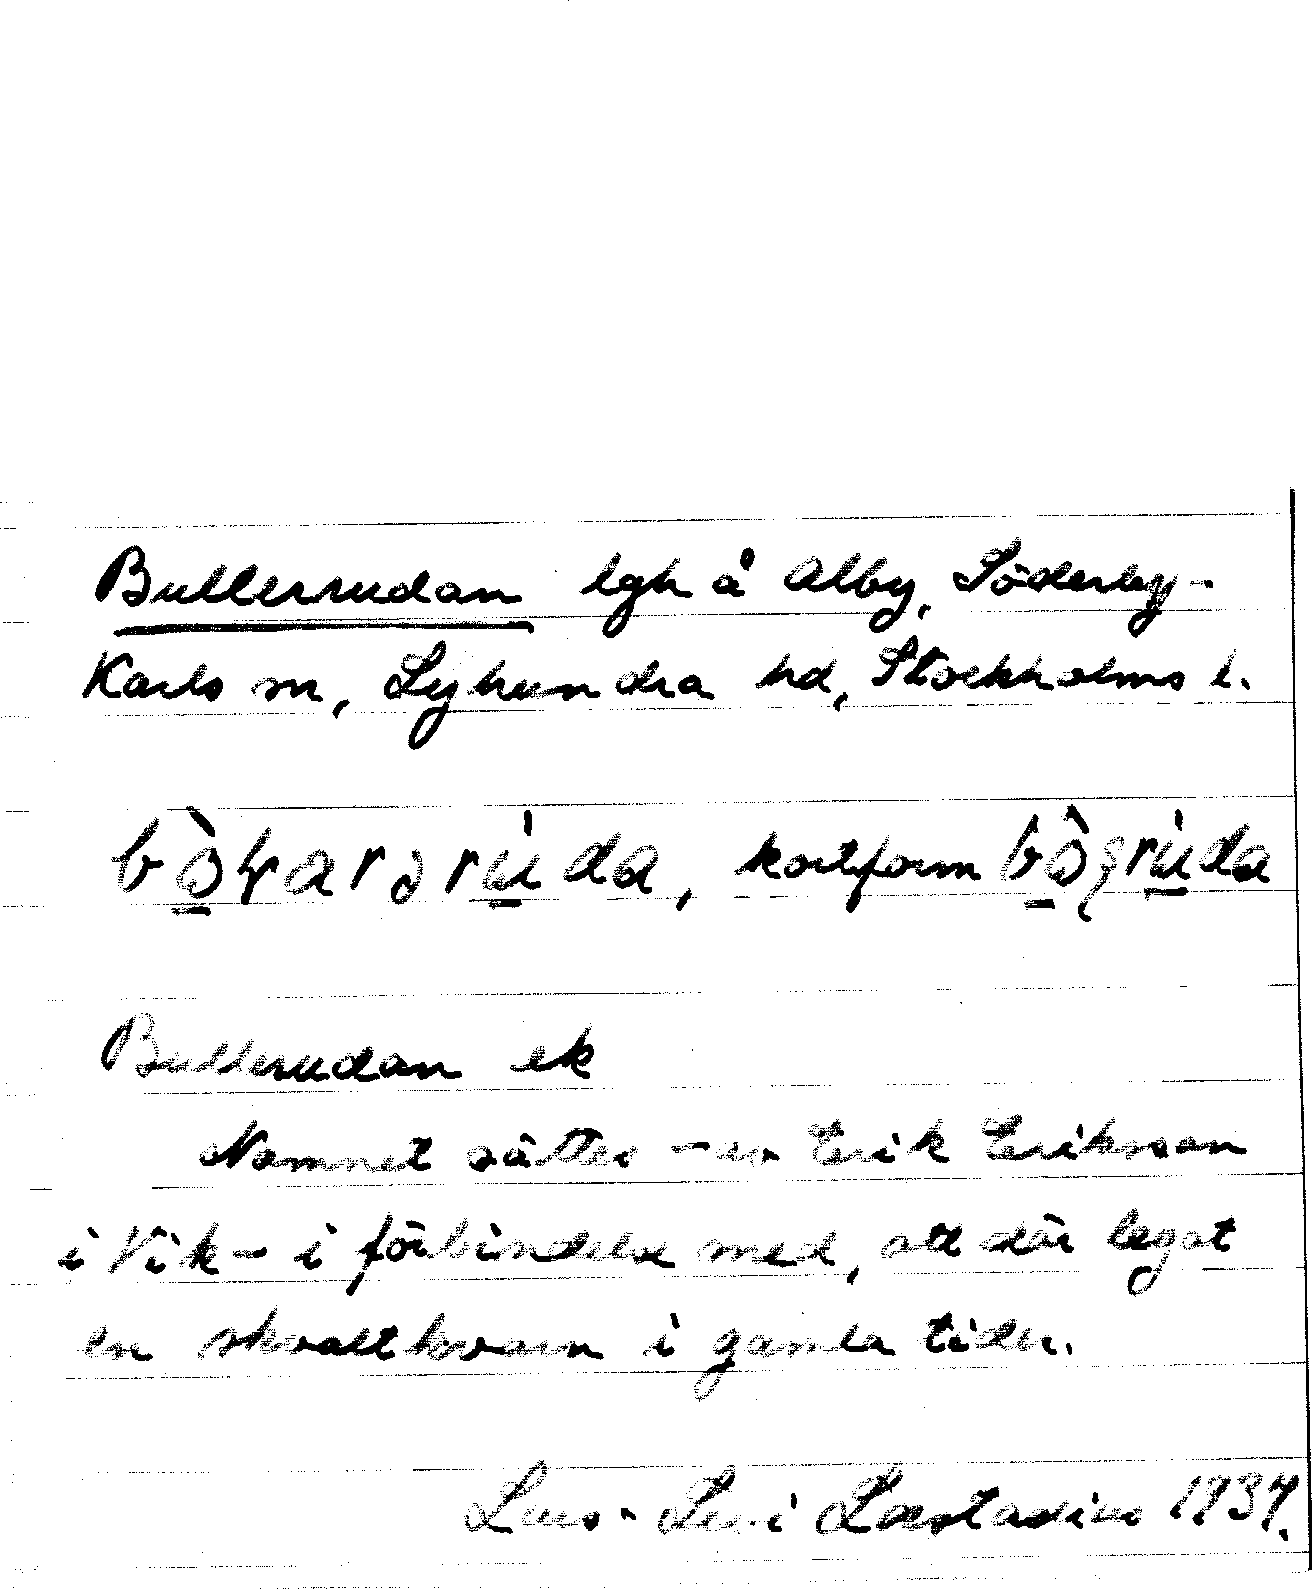 Bullerrudan lgh å Alby, Söderby-
Karls sn, Lyhundra hd, Stockholms l.
kortform
Bullerudan ek
Namnet sättes - av Erik Eriksson
i Vik - i förbindelse med, att där legat
en skvaltkvarn i gamla tider.
Lars-Levi Læstadius 1937.